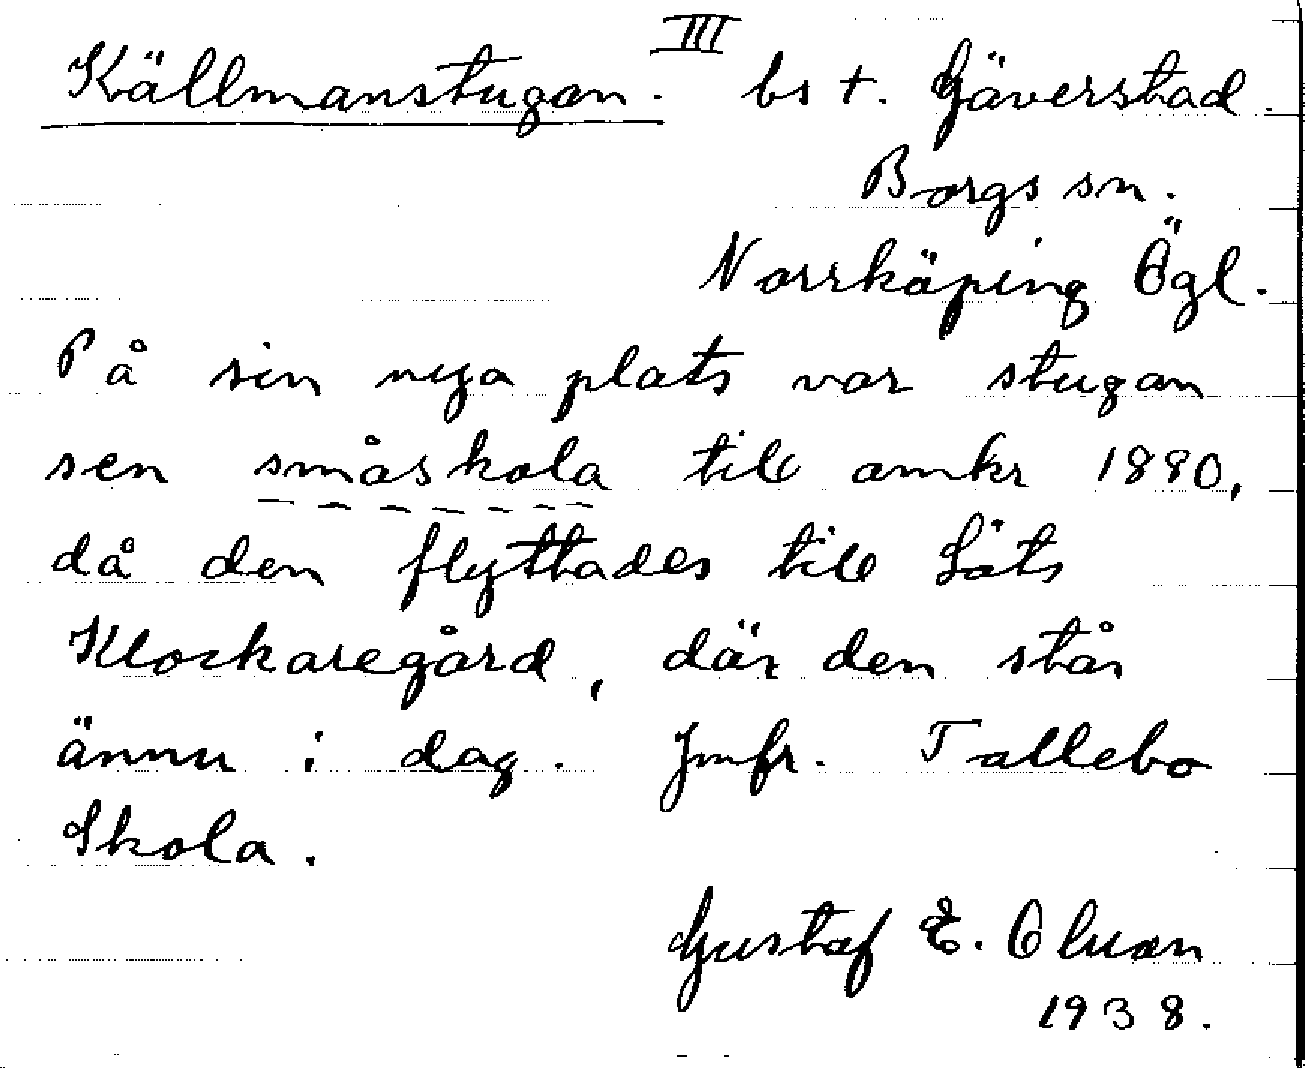 III
Källmanstugan. bs t. Gäverstad.
Borgs sn.
Norrköping Ögl.
På sin nya plats var stugan
sen småskola till omkr 1880,
då den flyttades till Löts
Klockaregård, där den står
ännu i dag. Jmfr. Tallebo
Skola.
Gustaf E. Olsson
1938.